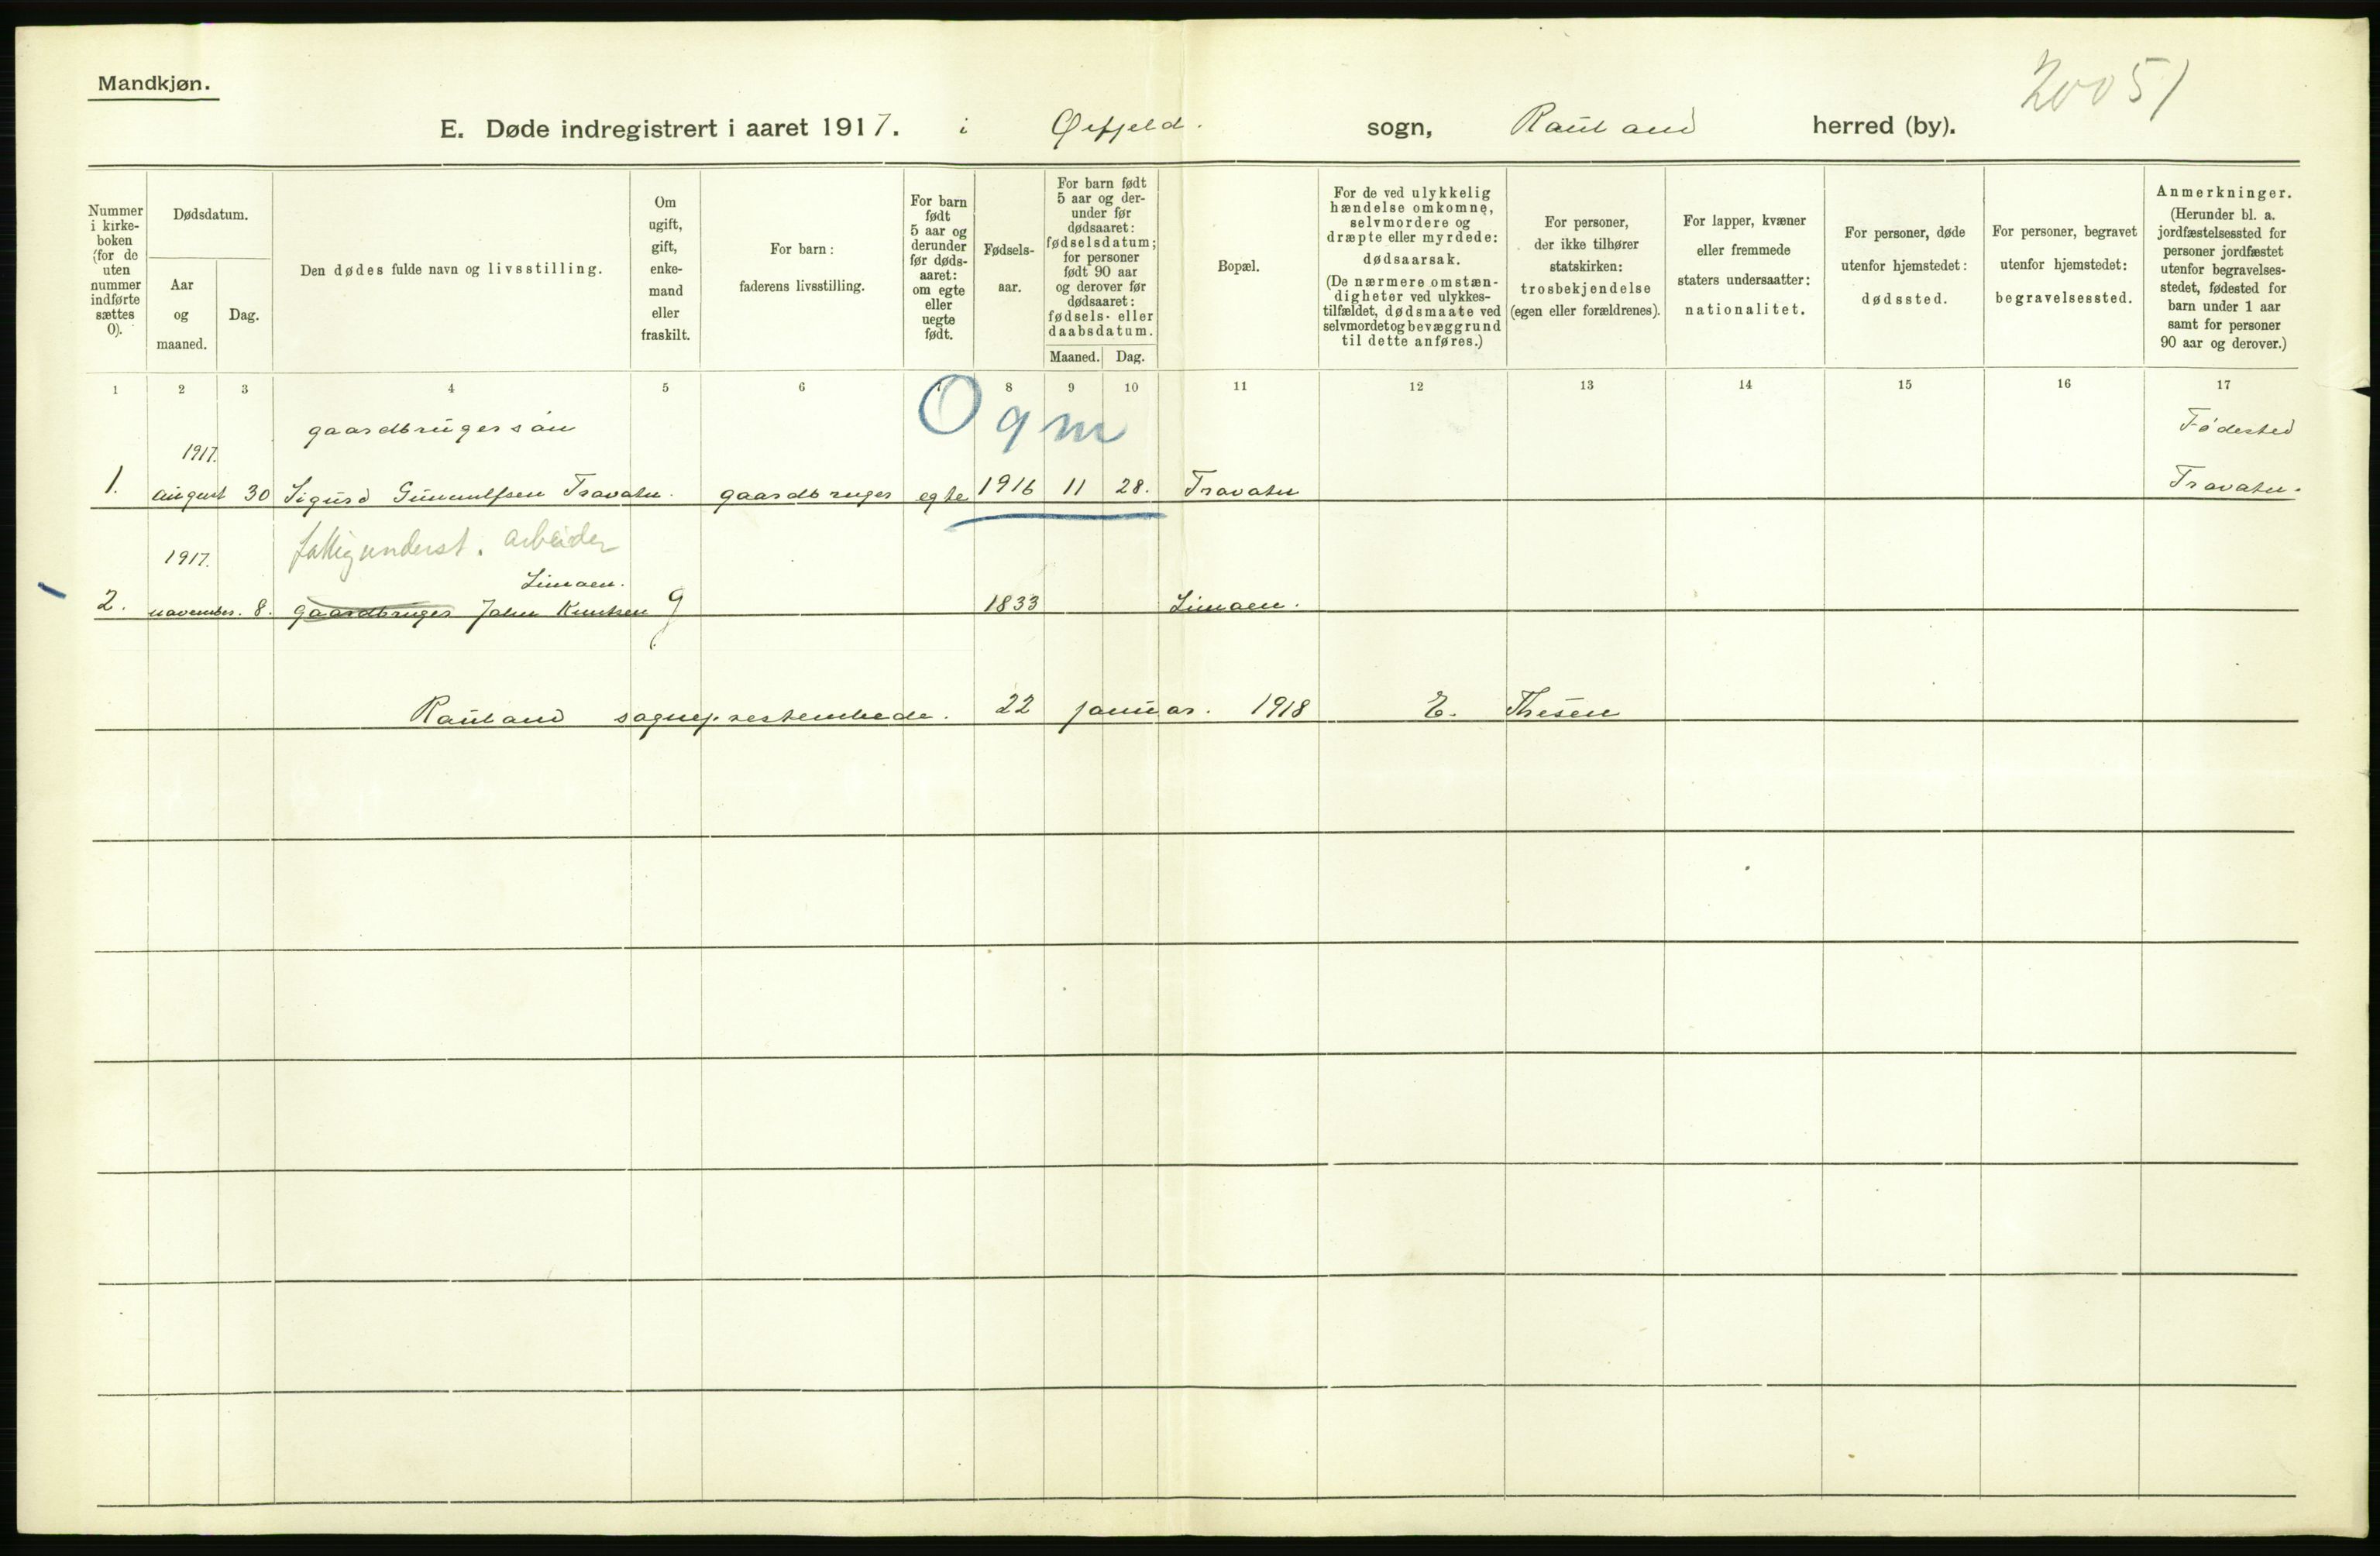 Mandkjøn.
20051
E. Døde indregistrert i aaret 1917. i Øifjeld. sogn, Rauland herred (by).
Nummer i kirkeboken (for de uten nummer indførte sættes 0).
Dødsdatum.
Aar og maaned.
Dag.
Den dødes fulde navn og livsstilling.
Om ugift, gift, enkemand eller fraskilt.
For barn: faderens livsstilling.
For barn født 5 aar og derunder før dødsaaret: om egte eller uegte født.
Fødselsaar.
For barn født 5 aar og derunder før dødsaaret: fødselsdatum; for personer født 90 aar og derover før dødsaaret: fødsels- eller daabsdatum.
Maaned. Dag.
Bopæl.
For de ved ulykkelig hændelse omkomne, selvmordere og dræpte eller myrdede: dødsaarsak. (De nærmere omstændigheter ved ulykkestilfældet, dødsmaate ved selvmordet og bevæggrund til dette anføres.)
For personer, der ikke tilhører statskirken: trosbekjendelse (egen eller forældrenes).
For lapper, kvæner eller fremmede staters undersaatter: nationalitet.
For personer, døde utenfor hjemstedet: dødssted.
For personer, begravet utenfor hjemstedet: begravelsessted.
Anmerkninger. (Herunder bl. a. jordfæstelsessted for personer jordfæstet utenfor begravelsesstedet, fødested for barn under 1 aar samt for personer 90 aar og derover.)
1 2 3 4 5 6 7 8 9 10 11 12 13 14 15 16 17
gaardbrugersøn Fødested
1917. 0 9 m
1. august 30 Sigurd Gunnulfsen Travatn. gaardbruger egte 1916 11 28. Travatn Travatn.
1917. fattigunderst. arbeider
Limoen.
2. november. 8. gaardbruger John Knutsen g 1833 Limoen.
Rauland sogneprestembede. 22 januar. 1918 E. Thesen